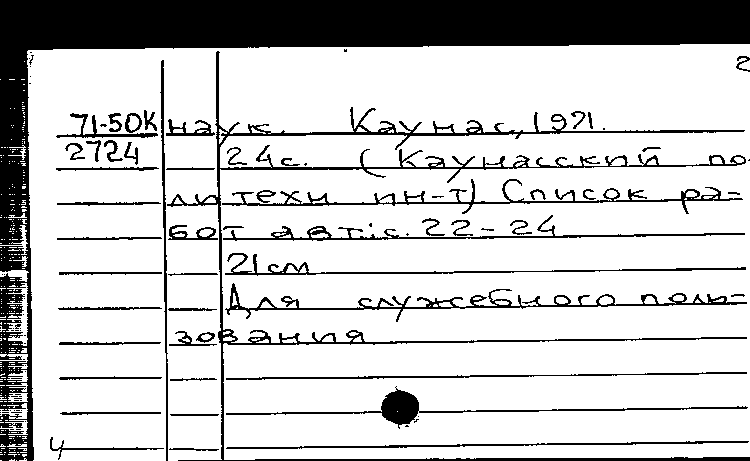 2
71-50К наук. Каунас, 1971.
2724 24с. (Каунасский по-
литехн. ин-т). Список ра=
бот авт.: с. 22-24
21см
Для служебного поль=
зования
4